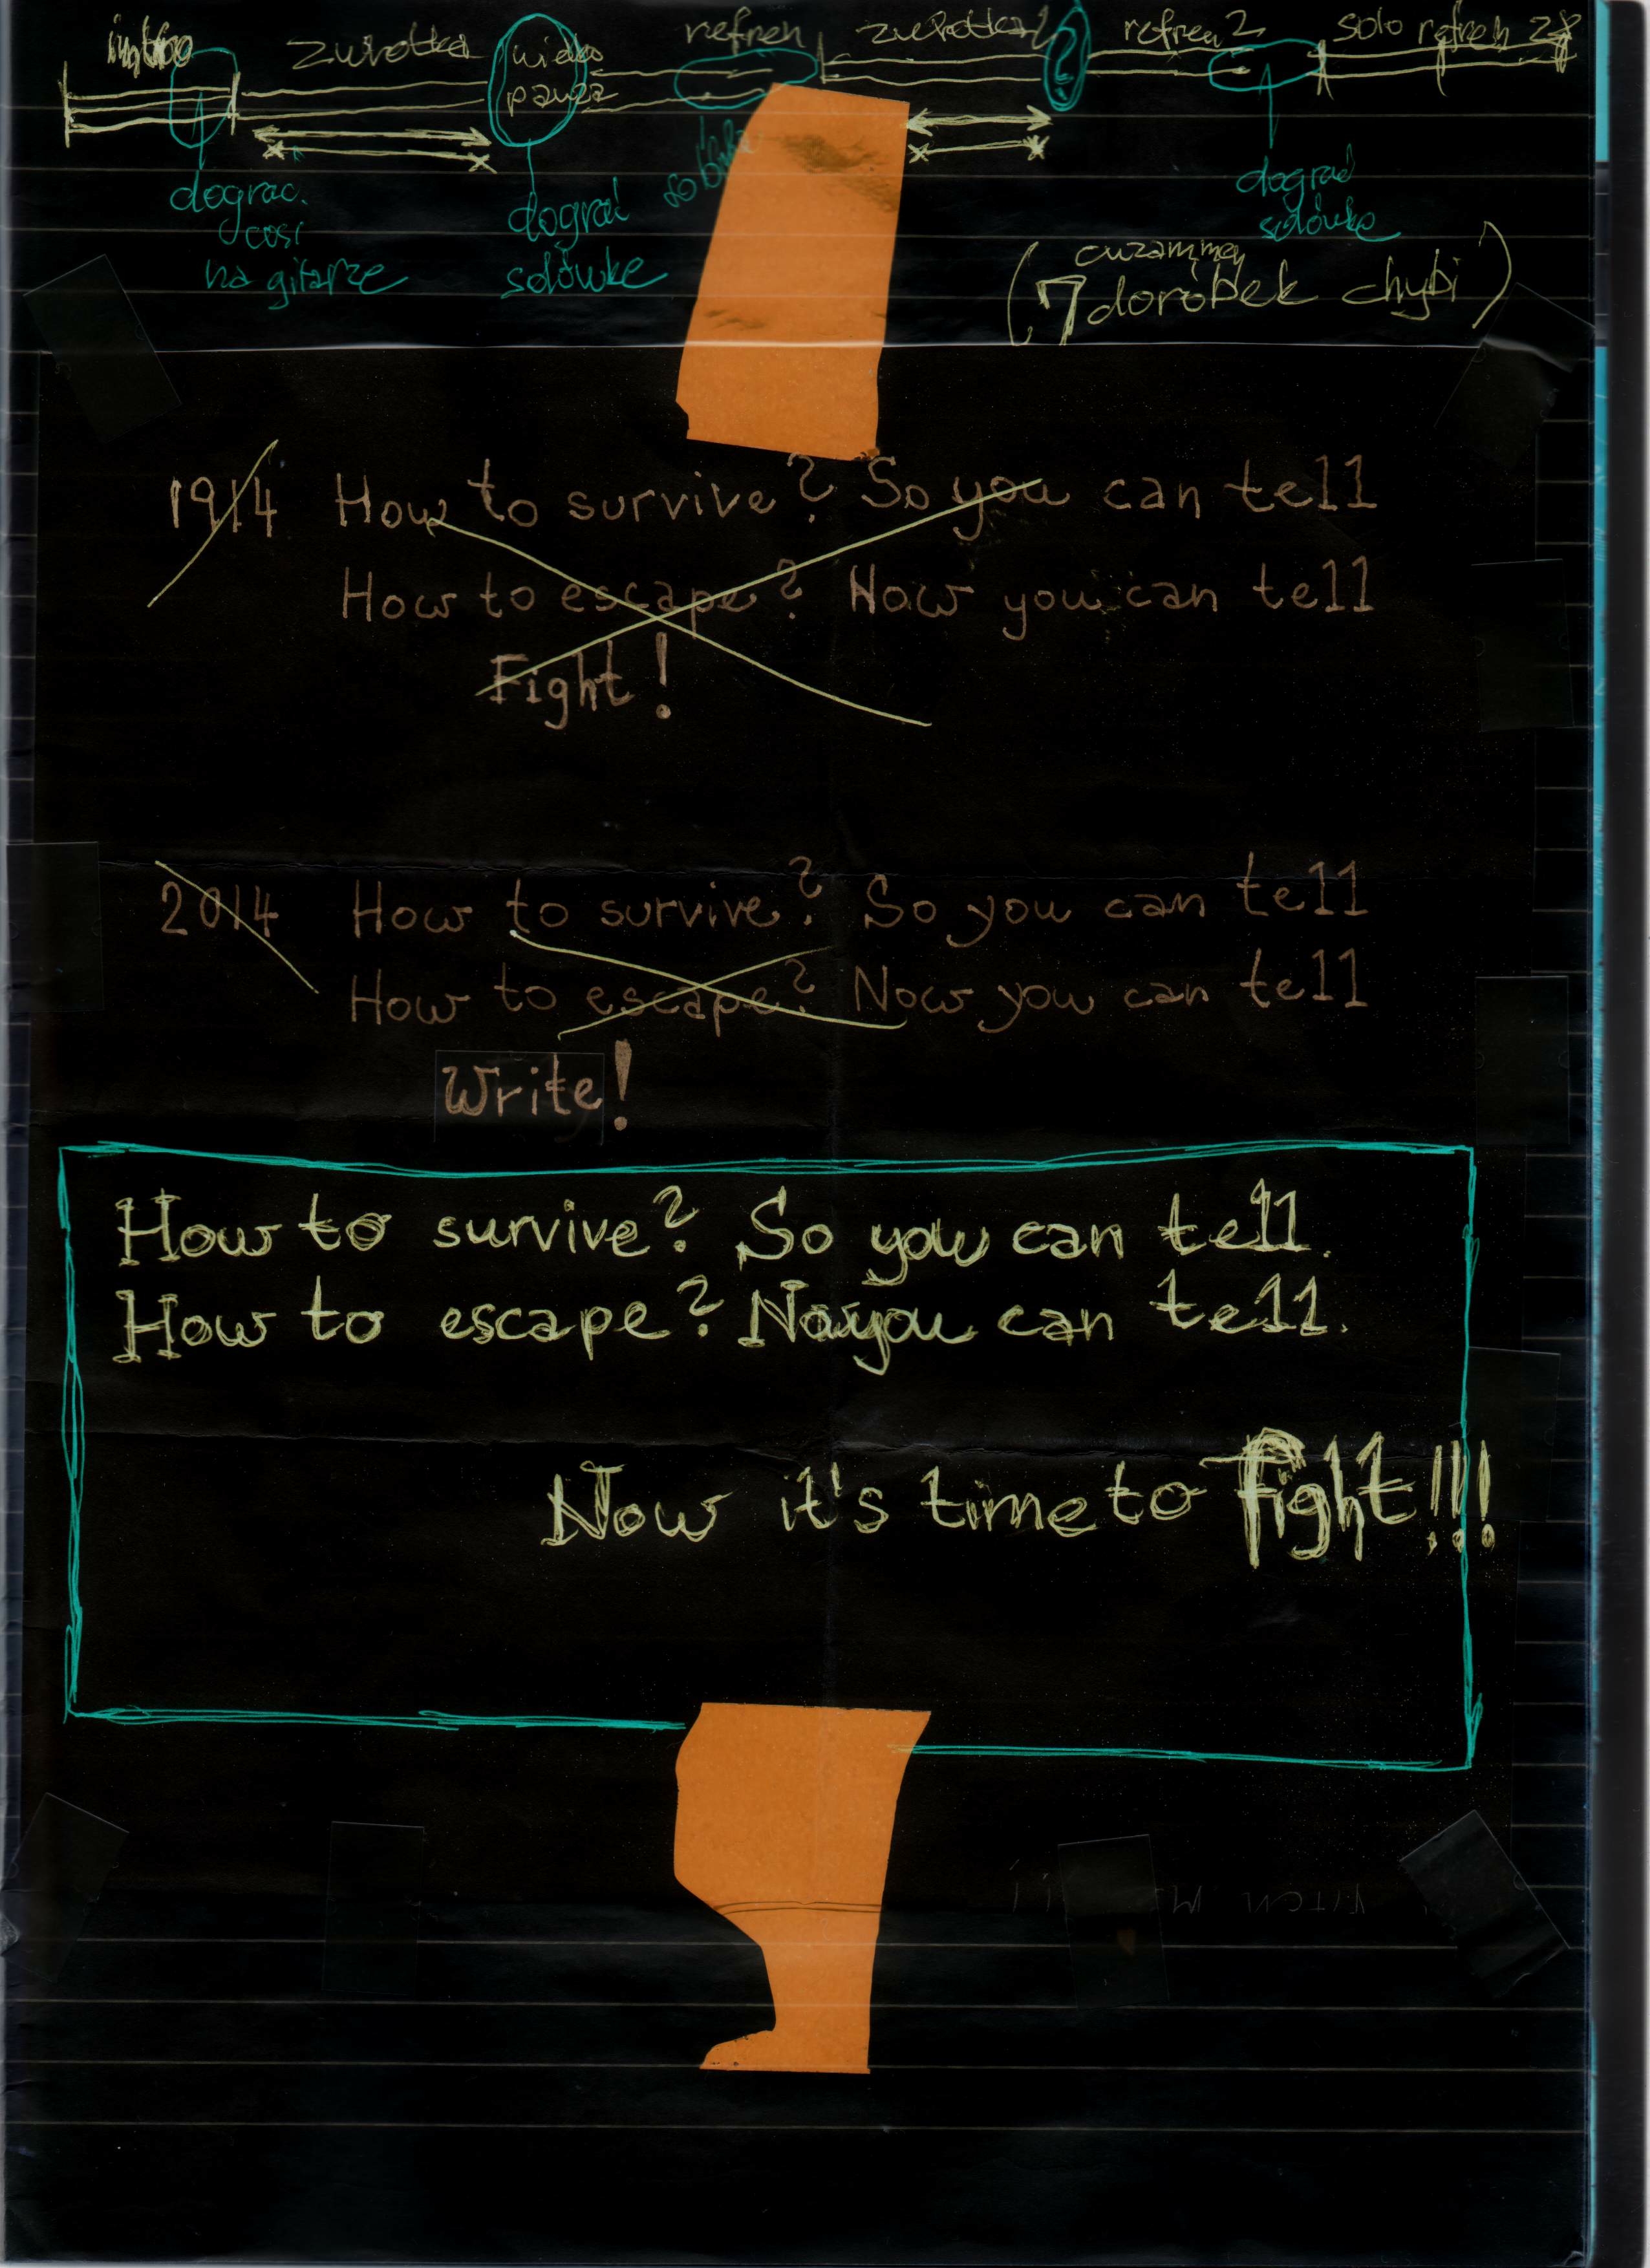 intro zwrotka wideo refren zwrotka 2 ? refren 2 solo refren
pauza
dograć
coś
na gitarze
dograć
solówkę
dograć
solówkę
(cuzammen
7 doróbek chybi)
1914 How to survive? So you can tell
How to escape? Now you can tell
Fight!
2014 How to survive? So you can tell
How to escape? Now you can tell
Write!
How to survive? So you can tell.
How to escape? Now you can tell.
Now it's time to Fight!!!